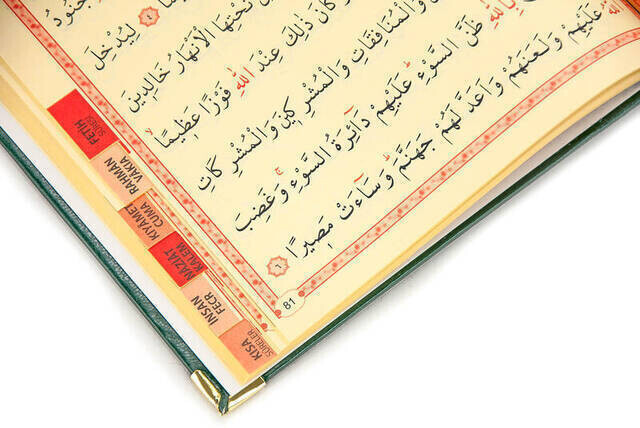 جُنُودُ
٤ لِيُدْخِلَ
تَحْتِهَا الْاَنْهَارُ خَالِدِينَ
كَانَ ذٰلِكَ عِنْدَ اللّٰهِ فَوْزًا عَظِيمًاۙ
وَالْمُنَافِقَاتِ وَالْمُشْرِكِينَ وَالْمُشْرِكَاتِ
بِاللّٰهِ ظَنَّ السَّوْءِ عَلَيْهِمْ دَٓائِرَةُ السَّوْءِ وَغَضِبَ
عَلَيْهِمْ وَلَعَنَهُمْ وَاَعَدَّ لَهُمْ جَهَنَّمَ وَسَٓاءَتْ مَصِيرًا ٦
81
FETİH
SURESİ
RAHMAN
VAKIA
KIYAMET
CUMA
NAZİAT
KALEM
İNSAN
FECR
KISA
SURELER